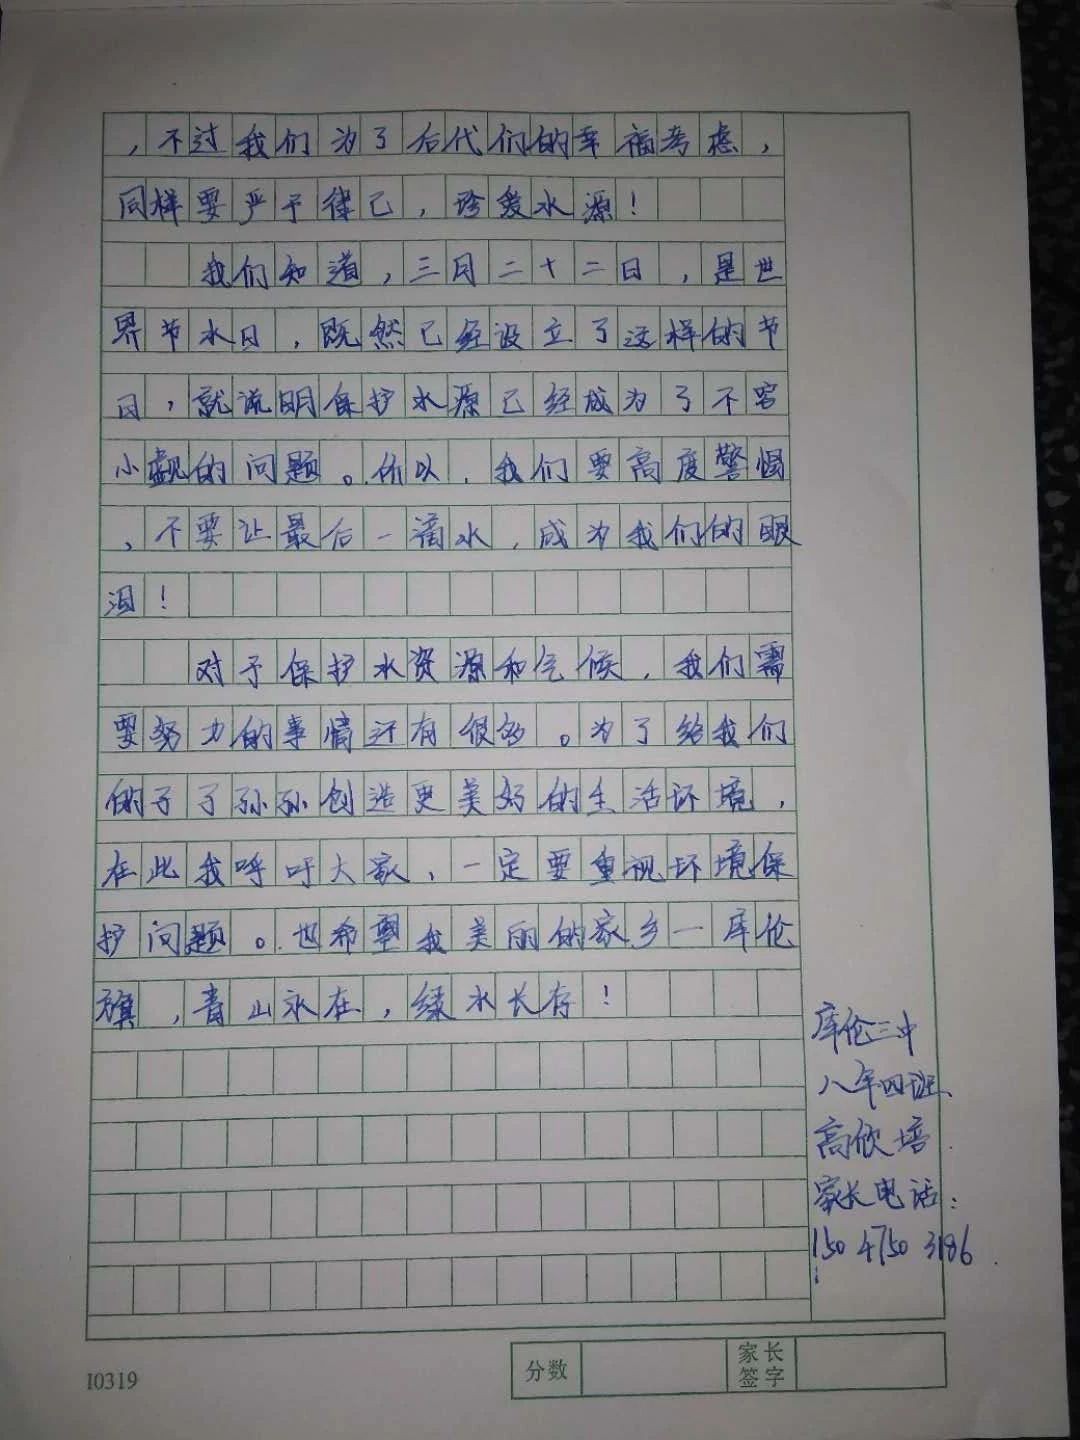 ，不过我们为了后代们的幸福考虑，
同样要严于律己，珍爱水源！
我们知道，三月二十二日，是世
界节水日，既然已经设立了这样的节
日，就说明保护水源已经成为了不容
小觑的问题。所以，我们要高度警惕
，不要让最后一滴水，成为我们的眼
泪！
对于保护水资源和气候，我们需
要努力的事情还有很多。为了给我们
的子子孙孙创造更美好的生活环境，
在此我呼吁大家，一定要重视环境保
护问题。也希望我美丽的家乡一库伦
旗，青山永在，绿水长存！
库伦三中
八年四班
高欣培
家长电话：
150 4750 3186
分数
家长签字
10319